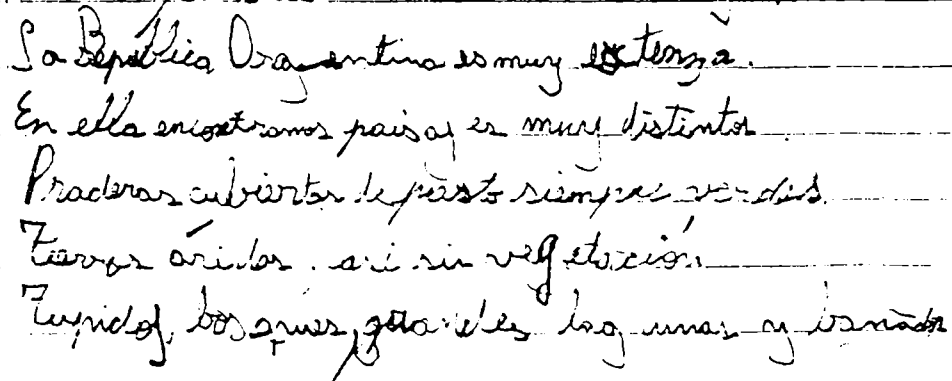 La República Argentina es muy extenza.
En ella encontramos paisajes muy distintos
Praderas cubiertas de pasto siempre verdes.
Tierras áridas casi sin vegetación
Tupidos bosques, grandes lagunas y bañados